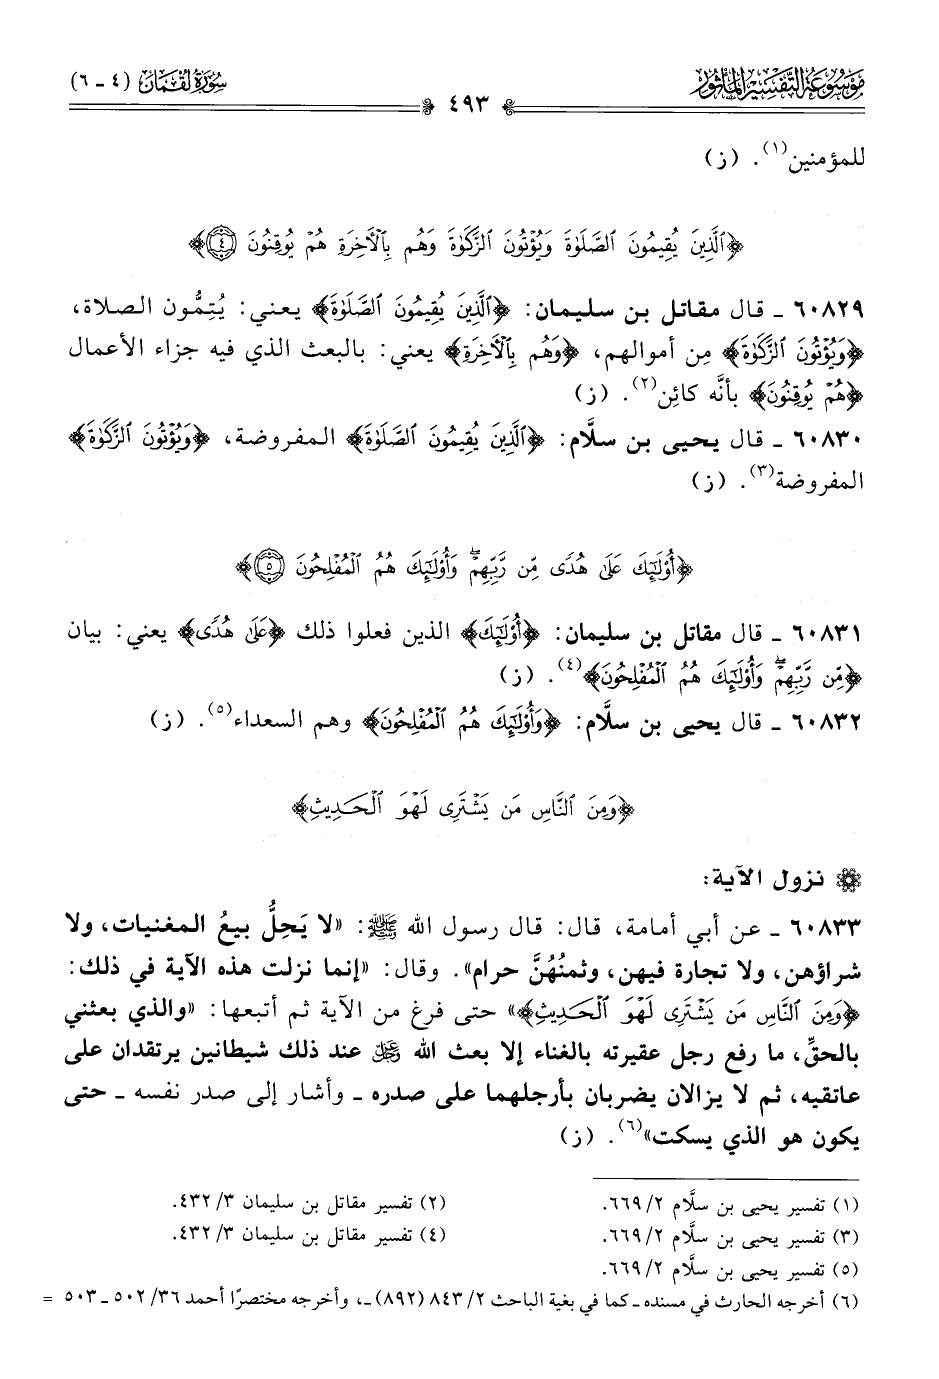 موسوعة التفسير المأثور
٤٩٣
سورة لقمان (٤ - ٦)
للمؤمنين(١). (ز)
﴿ٱلَّذِينَ يُقِيمُونَ ٱلصَّلَوٰةَ وَيُؤْتُونَ ٱلزَّكَوٰةَ وَهُم بِٱلْأَخِرَةِ هُمْ يُوقِنُونَ ٤﴾
٦٠٨٢٩ - قال مقاتل بن سليمان: ﴿ٱلَّذِينَ يُقِيمُونَ ٱلصَّلَوٰةَ﴾ يعني: يُتِمُّون الصلاة،
﴿وَيُؤْتُونَ ٱلزَّكَوٰةَ﴾ مِن أموالهم، ﴿وَهُم بِٱلْأَخِرَةِ﴾ يعني: بالبعث الذي فيه جزاء الأعمال
﴿هُمْ يُوقِنُونَ﴾ بأنَّه كائِن(٢). (ز)
٦٠٨٣٠ - قال يحيى بن سلَّام: ﴿ٱلَّذِينَ يُقِيمُونَ ٱلصَّلَوٰةَ﴾ المفروضة، ﴿وَيُؤْتُونَ ٱلزَّكَوٰةَ﴾
المفروضة(٣). (ز)
﴿أُوْلَٰٓئِكَ عَلَىٰ هُدًى مِّن رَّبِّهِمْۖ وَأُوْلَٰٓئِكَ هُمُ ٱلْمُفْلِحُونَ ٥﴾
٦٠٨٣١ - قال مقاتل بن سليمان: ﴿أُوْلَٰٓئِكَ﴾ الذين فعلوا ذلك ﴿عَلَىٰ هُدًى﴾ يعني: بيان
﴿مِّن رَّبِّهِمْۖ وَأُوْلَٰٓئِكَ هُمُ ٱلْمُفْلِحُونَ﴾(٤). (ز)
٦٠٨٣٢ - قال يحيى بن سلَّام: ﴿وَأُوْلَٰٓئِكَ هُمُ ٱلْمُفْلِحُونَ﴾ وهم السعداء(٥). (ز)
﴿وَمِنَ ٱلنَّاسِ مَن يَشْتَرِى لَهْوَ ٱلْحَدِيثِ﴾
نزول الآية:
٦٠٨٣٣ - عن أبي أمامة، قال: قال رسول الله ﷺ: «لا يَحِلُّ بيعُ المغنيات، ولا
شراؤهن، ولا تجارة فيهن، وثمنُهُنَّ حرام». وقال: «إنما نزلت هذه الآية في ذلك:
﴿وَمِنَ ٱلنَّاسِ مَن يَشْتَرِى لَهْوَ ٱلْحَدِيثِ﴾» حتى فرغ من الآية ثم أتبعها: «والذي بعثني
بالحقِّ، ما رفع رجل عقيرته بالغناء إلا بعث الله ﷻ عند ذلك شيطانين يرتقدان على
عاتقيه، ثم لا يزالان يضربان بأرجلهما على صدره - وأشار إلى صدر نفسه - حتى
يكون هو الذي يسكت»(٦). (ز)
(١) تفسير يحيى بن سلَّام ٢/ ٦٦٩.
(٢) تفسير مقاتل بن سليمان ٣/ ٤٣٢.
(٣) تفسير يحيى بن سلَّام ٢/ ٦٦٩.
(٤) تفسير مقاتل بن سليمان ٣/ ٤٣٢.
(٥) تفسير يحيى بن سلَّام ٢/ ٦٦٩.
(٦) أخرجه الحارث في مسنده - كما في بغية الباحث ٢/ ٨٤٣ (٨٩٢) -، وأخرجه مختصرًا أحمد ٣٦/ ٥٠٢ - ٥٠٣ =